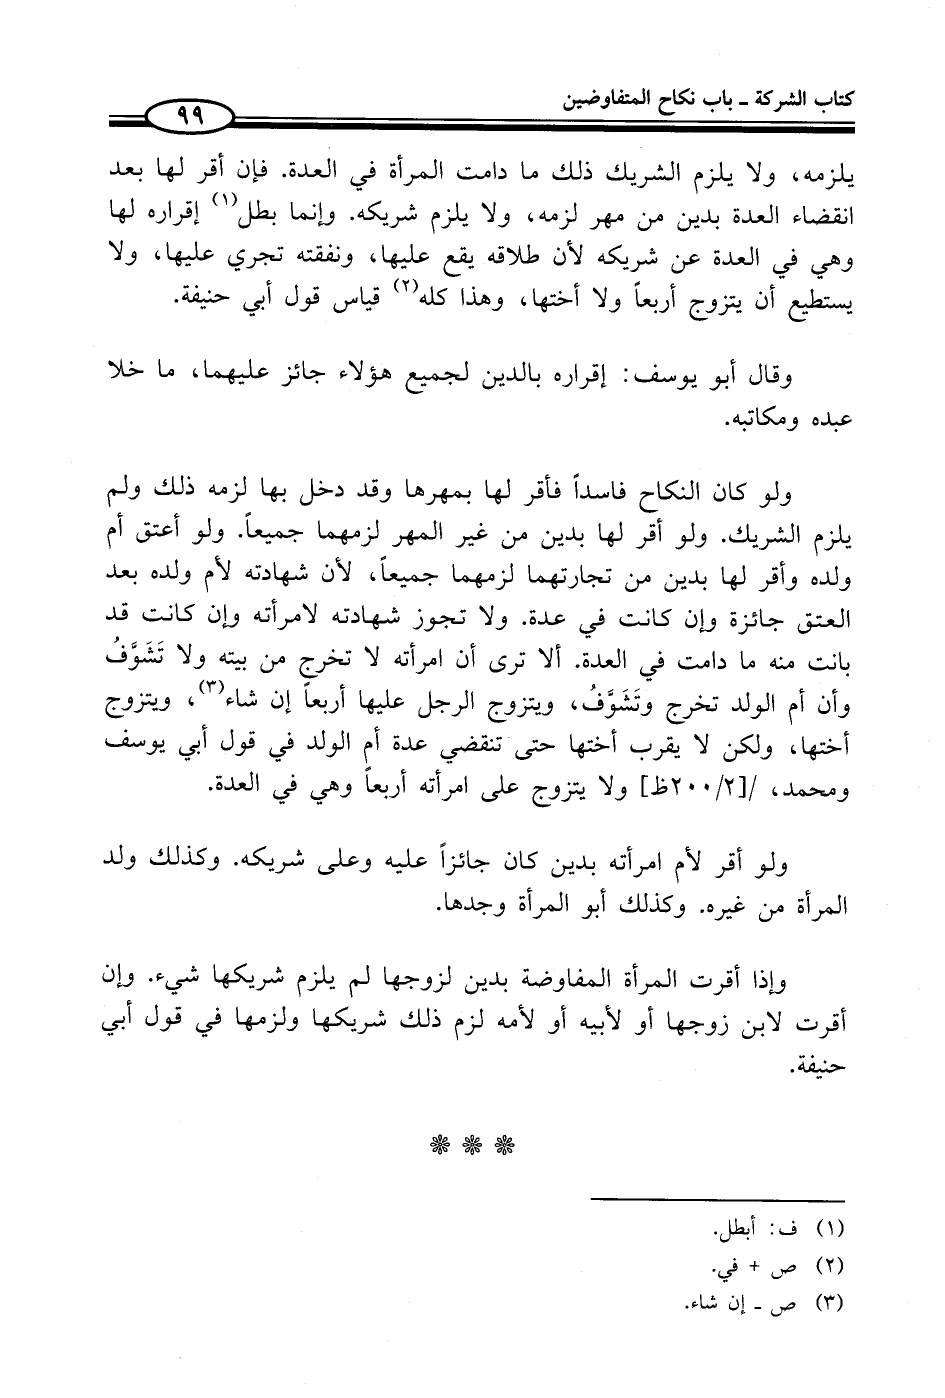 كتاب الشركة - باب نكاح المتفاوضين
٩٩
يلزمه، ولا يلزم الشريك ذلك ما دامت المرأة في العدة. فإن أقر لها بعد
انقضاء العدة بدين من مهر لزمه، ولا يلزم شريكه. وإنما بطل(١) إقراره لها
وهي في العدة عن شريكه لأن طلاقه يقع عليها، ونفقته تجري عليها، ولا
يستطيع أن يتزوج أربعاً ولا أختها، وهذا كله(٢) قياس قول أبي حنيفة.
وقال أبو يوسف: إقراره بالدين لجميع هؤلاء جائز عليهما، ما خلا
عبده ومكاتبه.
ولو كان النكاح فاسداً فأقر لها بمهرها وقد دخل بها لزمه ذلك ولم
يلزم الشريك. ولو أقر لها بدين من غير المهر لزمهما جميعاً. ولو أعتق أم
ولده وأقر لها بدين من تجارتهما لزمهما جميعاً، لأن شهادته لأم ولده بعد
العتق جائزة وإن كانت في عدة. ولا تجوز شهادته لامرأته وإن كانت قد
بانت منه ما دامت في العدة. ألا ترى أن امرأته لا تخرج من بيته ولا تَشَوَّفُ
وأن أم الولد تخرج وتَشَوَّفُ، ويتزوج الرجل عليها أربعاً إن شاء(٣)، ويتزوج
أختها، ولكن لا يقرب أختها حتى تنقضي عدة أم الولد في قول أبي يوسف
ومحمد، /[٢/٢٠٠ظ] ولا يتزوج على امرأته أربعاً وهي في العدة.
ولو أقر لأم امرأته بدين كان جائزاً عليه وعلى شريكه. وكذلك ولد
المرأة من غيره. وكذلك أبو المرأة وجدها.
وإذا أقرت المرأة المفاوضة بدين لزوجها لم يلزم شريكها شيء. وإن
أقرت لابن زوجها أو لأبيه أو لأمه لزم ذلك شريكها ولزمها في قول أبي
حنيفة.
(١) ف: أبطل.
(٢) ص + في.
(٣) ص - إن شاء.